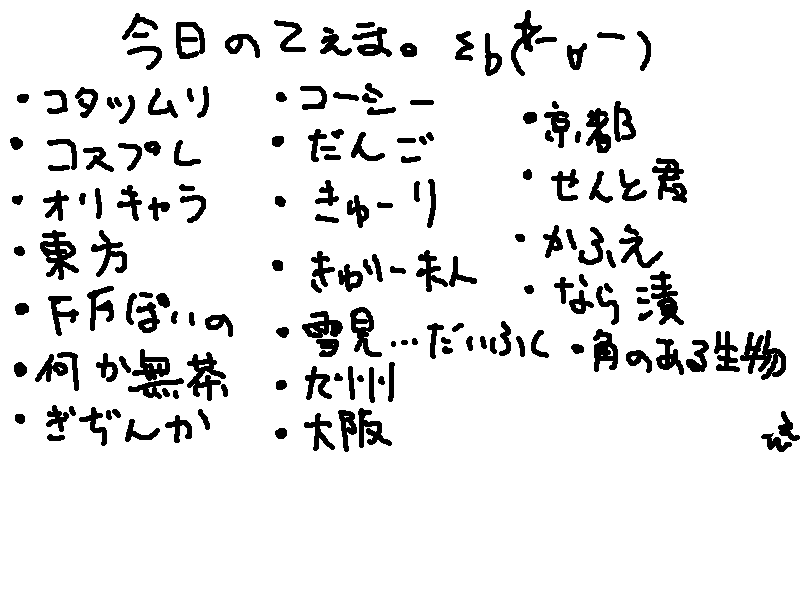 今日のてぇま。Σb(*ー∀ー)
・コタツムリ
・コスプレ
・オリキャラ
・東方
・FFぽいの
・何か無茶
・ぎぢんか
・コーシー
・だんご
・きゅーり
・きゅりー夫人
・雪見…だいふく
・九州
・大阪
・京都
・せんと君
・かふえ
・なら漬
・角のある生物